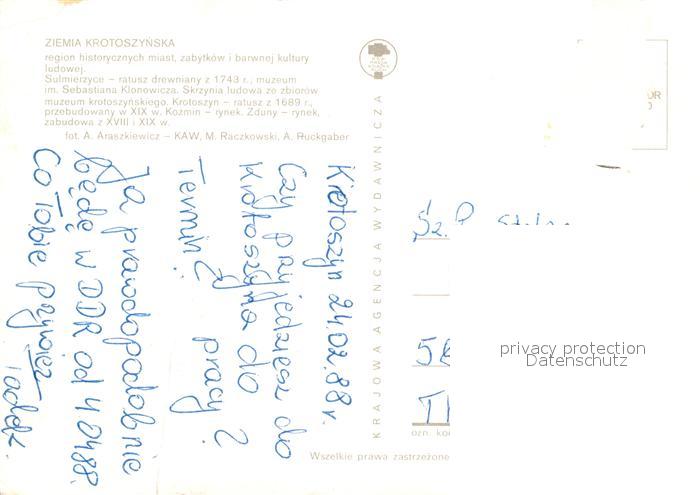 ZIEMIA KROTOSZYŃSKA
region historycznych miast, zabytków i barwnej kultury
ludowej.
Sulmierzyce – ratusz drewniany z 1743 r., muzeum
im. Sebastiana Klonowicza. Skrzynia ludowa ze zbiorów
muzeum krotoszyńskiego. Krotoszyn – ratusz z 1689 r.,
przebudowany w XIX w. Koźmin – rynek. Zduny – rynek,
zabudowa z XVIII i XIX w.
fot. A. Araszkiewicz – KAW, M. Raczkowski, A. Ruckgaber
Krotoszyn 24.02.88 r.
Czy przyjedziesz do
Krotoszyna do
pracy ?
Termin ?
Ja prawdopodobnie
będę w DDR od 4 04 88.
Co Tobie przywieź
KRAJOWA AGENCJA WYDAWNICZA
Sz. P
privacy protection
Datenschutz
Wszelkie prawa zastrzeżone